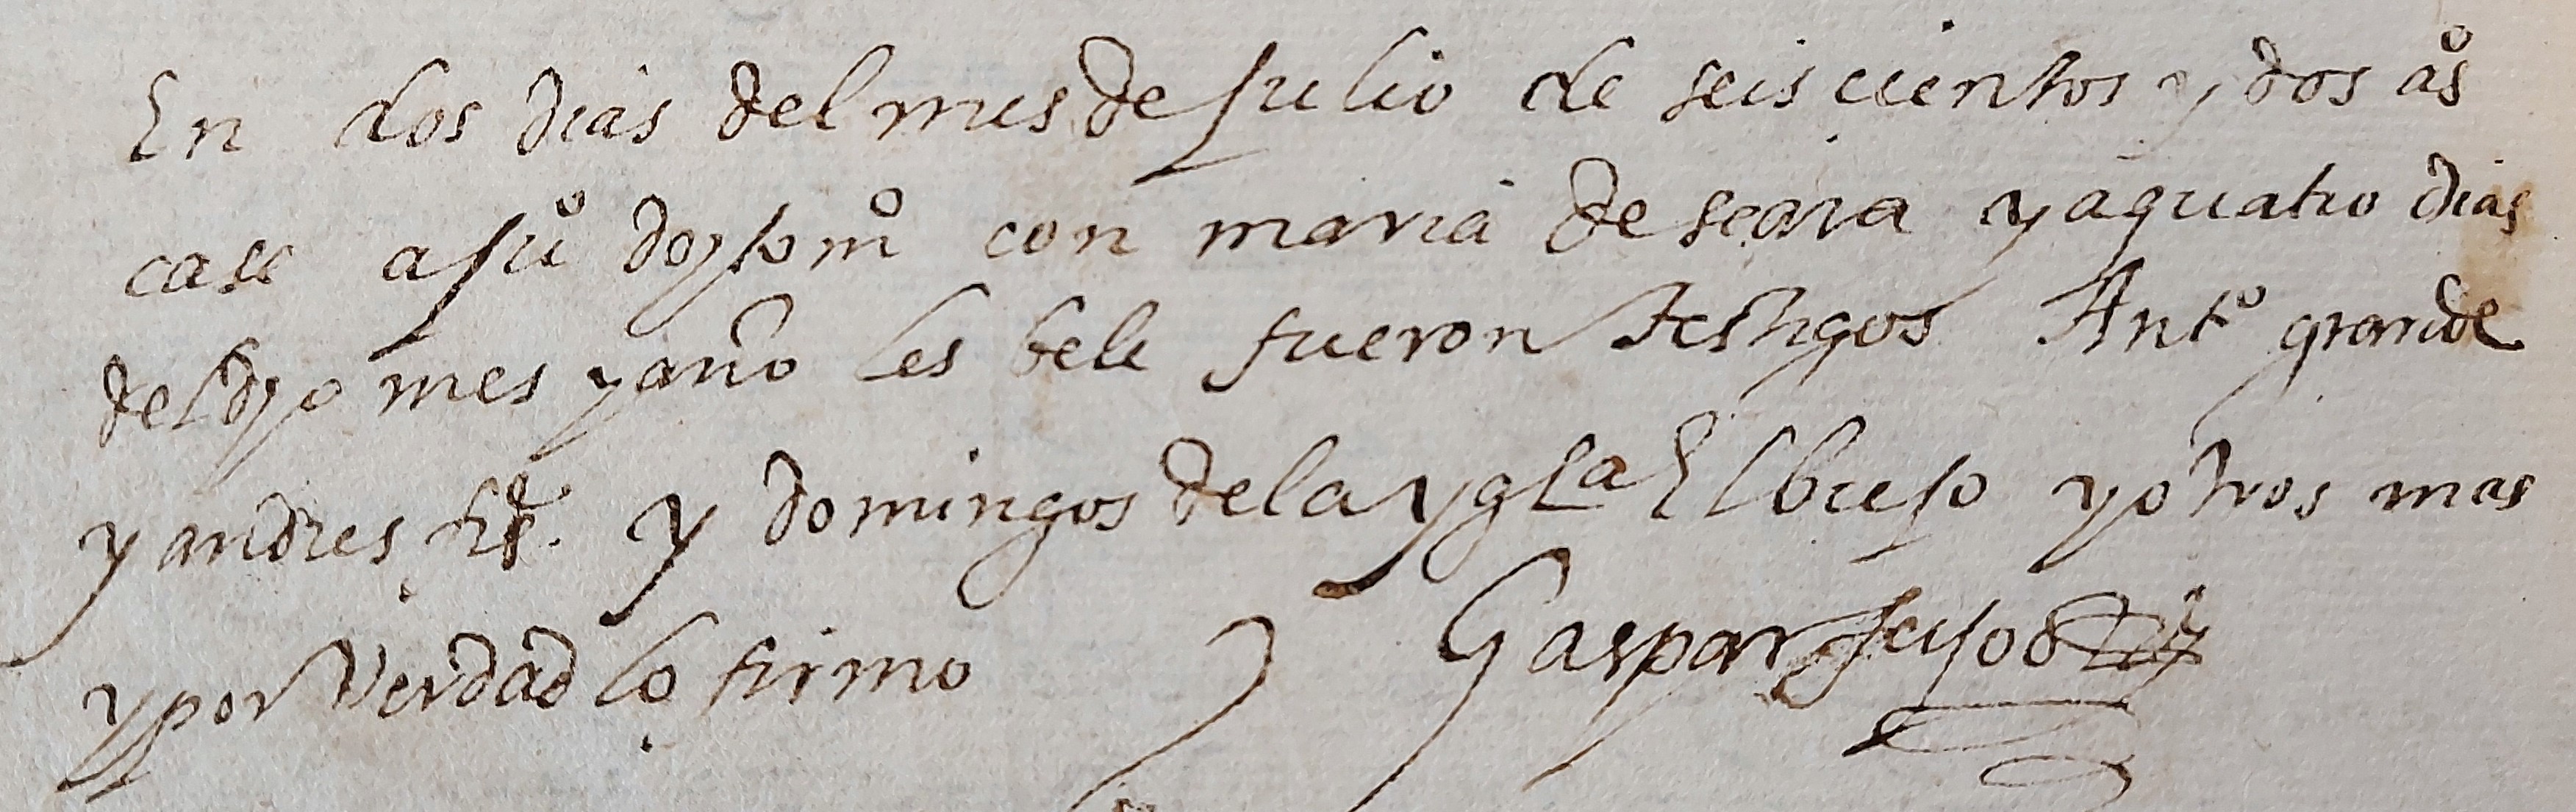 En dos dias del mes de Julio de seiscientos y dos aºs
case a Juº do con maria de seara y a quatro dias
del dho mes y año les bele fueron testigos Antº grande
y andres y domingos de la ygla El biejo y otros mas
y por Verdad lo firmo Gaspar feijoo